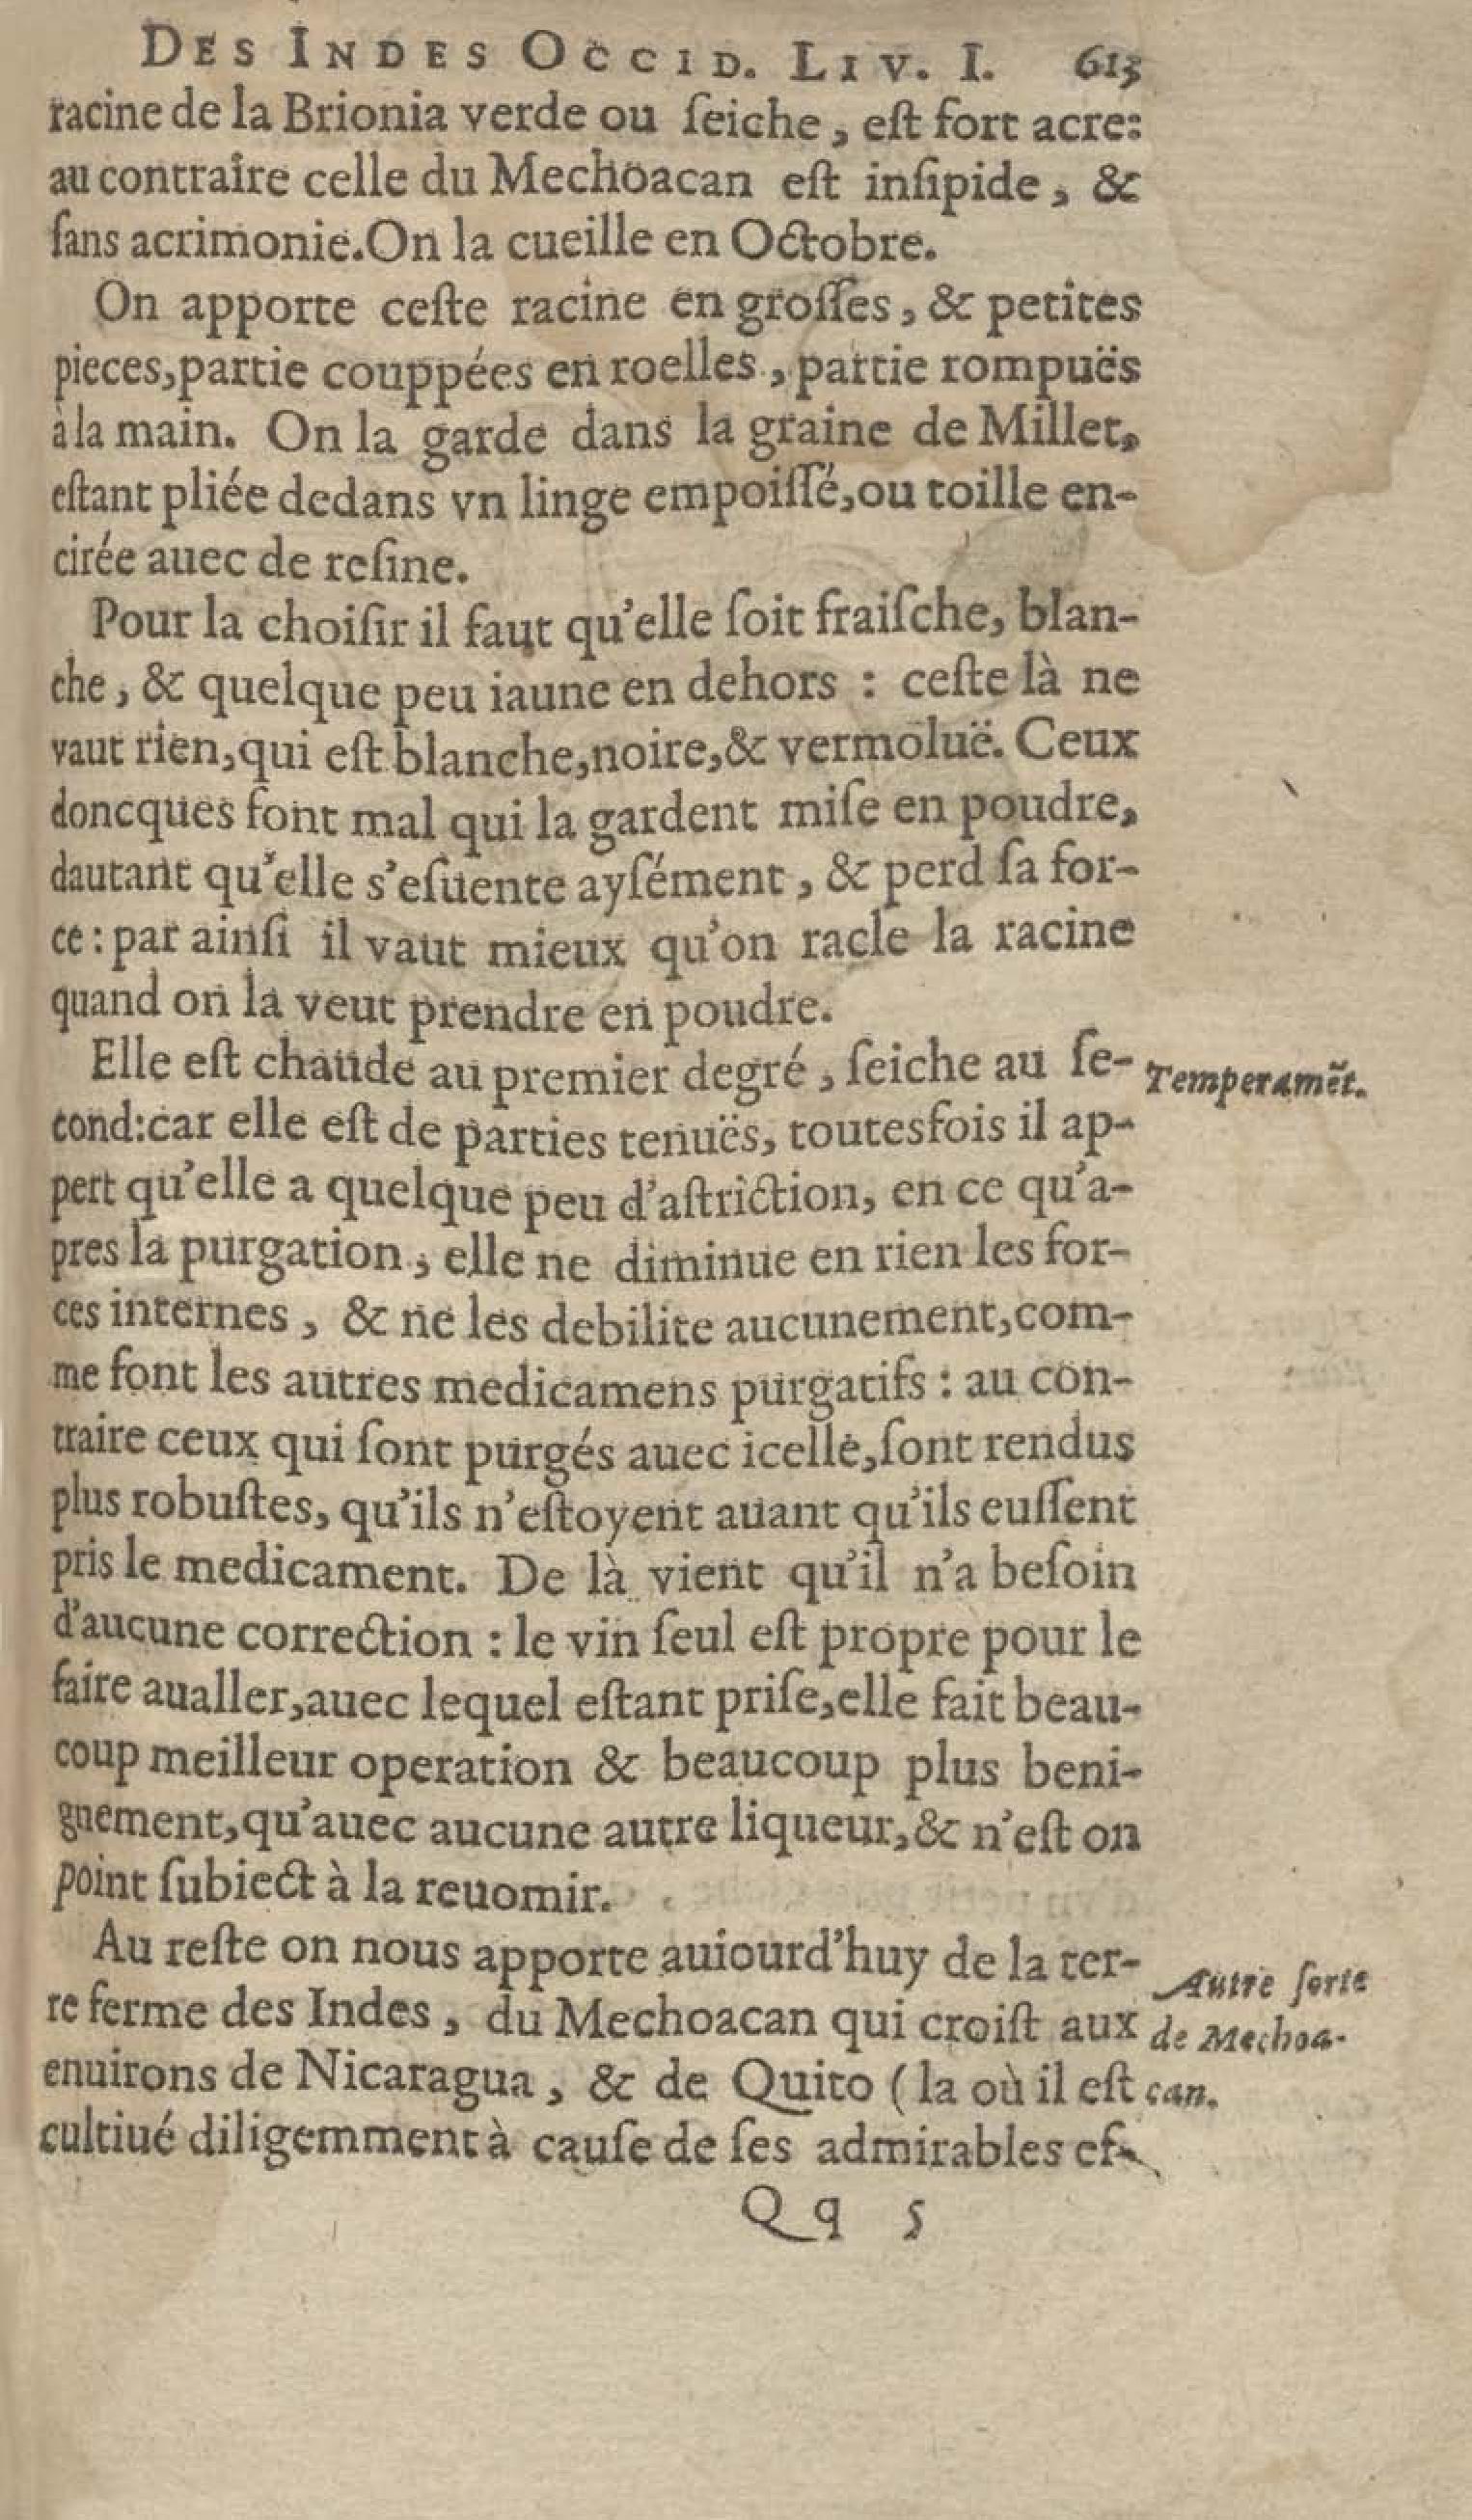 DES INDES OCCID. LIV. I. 613
racine de la Brionia verde ou ſeiche, eſt fort acre:
au contraire celle du Mechoacan eſt inſipide, &
ſans acrimonie. On la cueille en Octobre.
On apporte ceſte racine en groſſes, & petites
pieces, partie couppées en roelles, partie rompuës
à la main. On la garde dans la graine de Millet,
eſtant pliée dedans vn linge empoiſſé, ou toille en-
cirée auec de reſine.
Pour la choiſir il faut qu'elle ſoit fraiſche, blan-
che, & quelque peu iaune en dehors : ceſte là ne
vaut rien, qui eſt blanche, noire, & vermoluë. Ceux
doncques font mal qui la gardent miſe en poudre,
dautant qu'elle s'eſuente ayſément, & perd ſa for-
ce : par ainſi il vaut mieux qu'on racle la racine
quand on la veut prendre en poudre.
Elle eſt chaude au premier degré, ſeiche au ſe-
Temperamẽt.
cond: car elle eſt de parties tenuës, toutesfois il ap-
pert qu'elle a quelque peu d'aſtriction, en ce qu'a-
pres la purgation, elle ne diminue en rien les for-
ces internes, & ne les debilite aucunement, com-
me font les autres medicamens purgatifs : au con-
traire ceux qui ſont purgés auec icelle, ſont rendus
plus robuſtes, qu'ils n'eſtoyent auant qu'ils euſſent
pris le medicament. De là vient qu'il n'a beſoin
d'aucune correction : le vin ſeul eſt propre pour le
faire aualler, auec lequel eſtant priſe, elle fait beau-
coup meilleur operation & beaucoup plus beni-
gnement, qu'auec aucune autre liqueur, & n'eſt on
point ſubiect à la reuomir.
Au reſte on nous apporte auiourd'huy de la ter-
re ferme des Indes, du Mechoacan qui croiſt aux
enuirons de Nicaragua, & de Quito (la où il eſt
cultiué diligemment à cauſe de ſes admirables ef-
Autre ſorte
de Mechoa-
can.
Qq 5